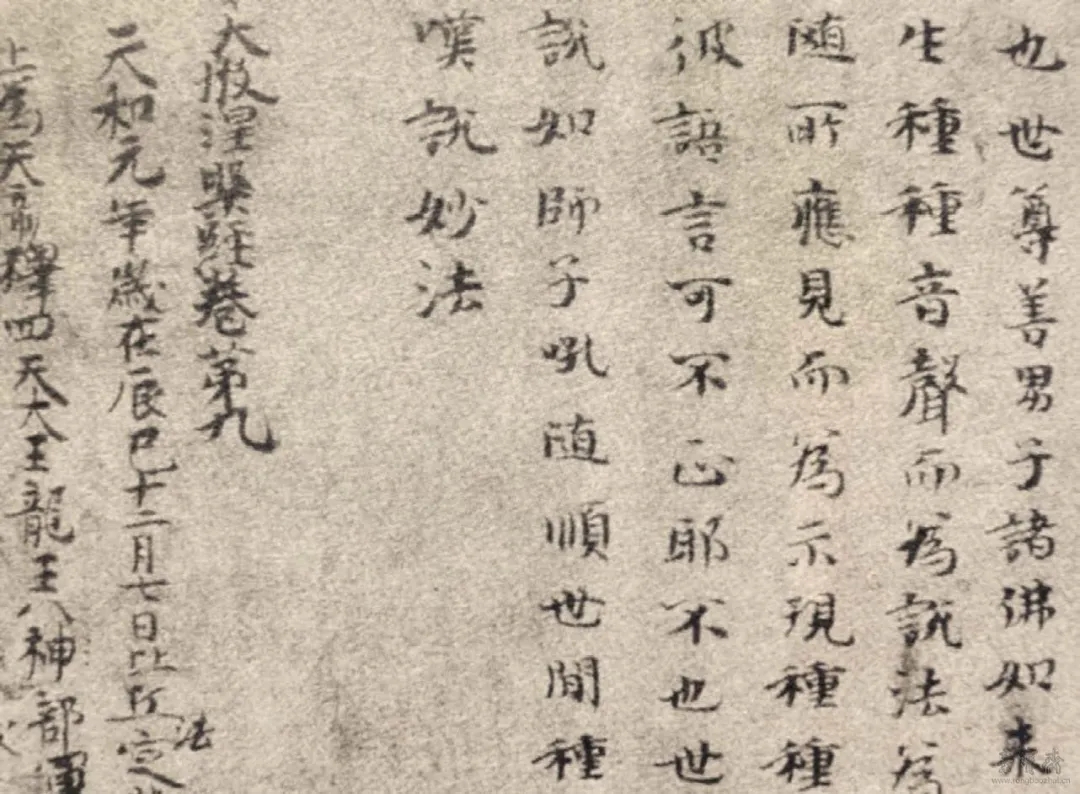 也世尊善男子諸佛如来
生種種音聲而為説法為
随所應見而為示現種種
彼語言可不正耶不也世
説如師子吼随順世間種
嘆説妙法
大般涅槃経巻第九
天和元年歳在辰巳十二月七日比丘定
法
上為天帝釋四天大王龍王八神部
www.rongbaozhai.cn